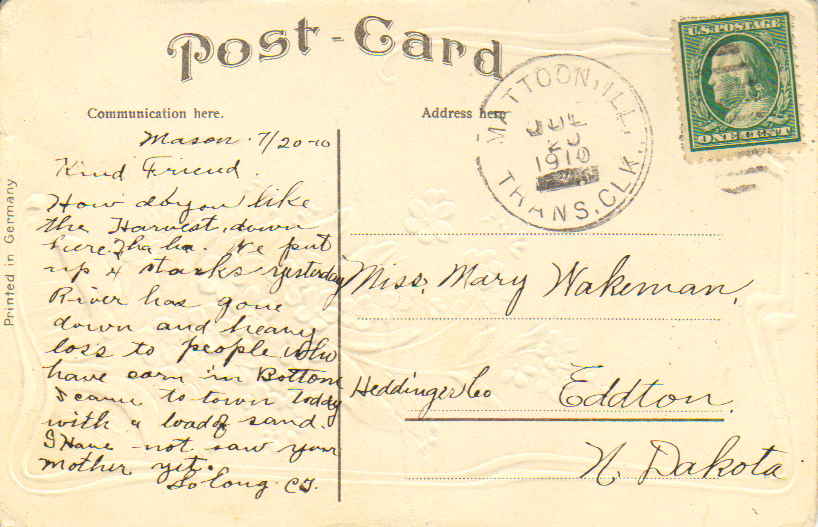 Post-Card
Communication here.
Address here
MATTOON, ILL.
JUL
20
1910
TRANS. CLK.
U.S. POSTAGE
ONE CENT
Printed in Germany
Mason 7/20-10
Kind Friend
How do you like
the Harvest, down
here? ha ha. We put
up 4 stacks yesterday
River has gone
down and heavy
loss to people who
have corn in Bottom
I came to town Today
with a load of sand.
I Have not saw your
mother yet.
So long
Miss. Mary Wakeman,
Heddinger Co Eddton.
N. Dakota